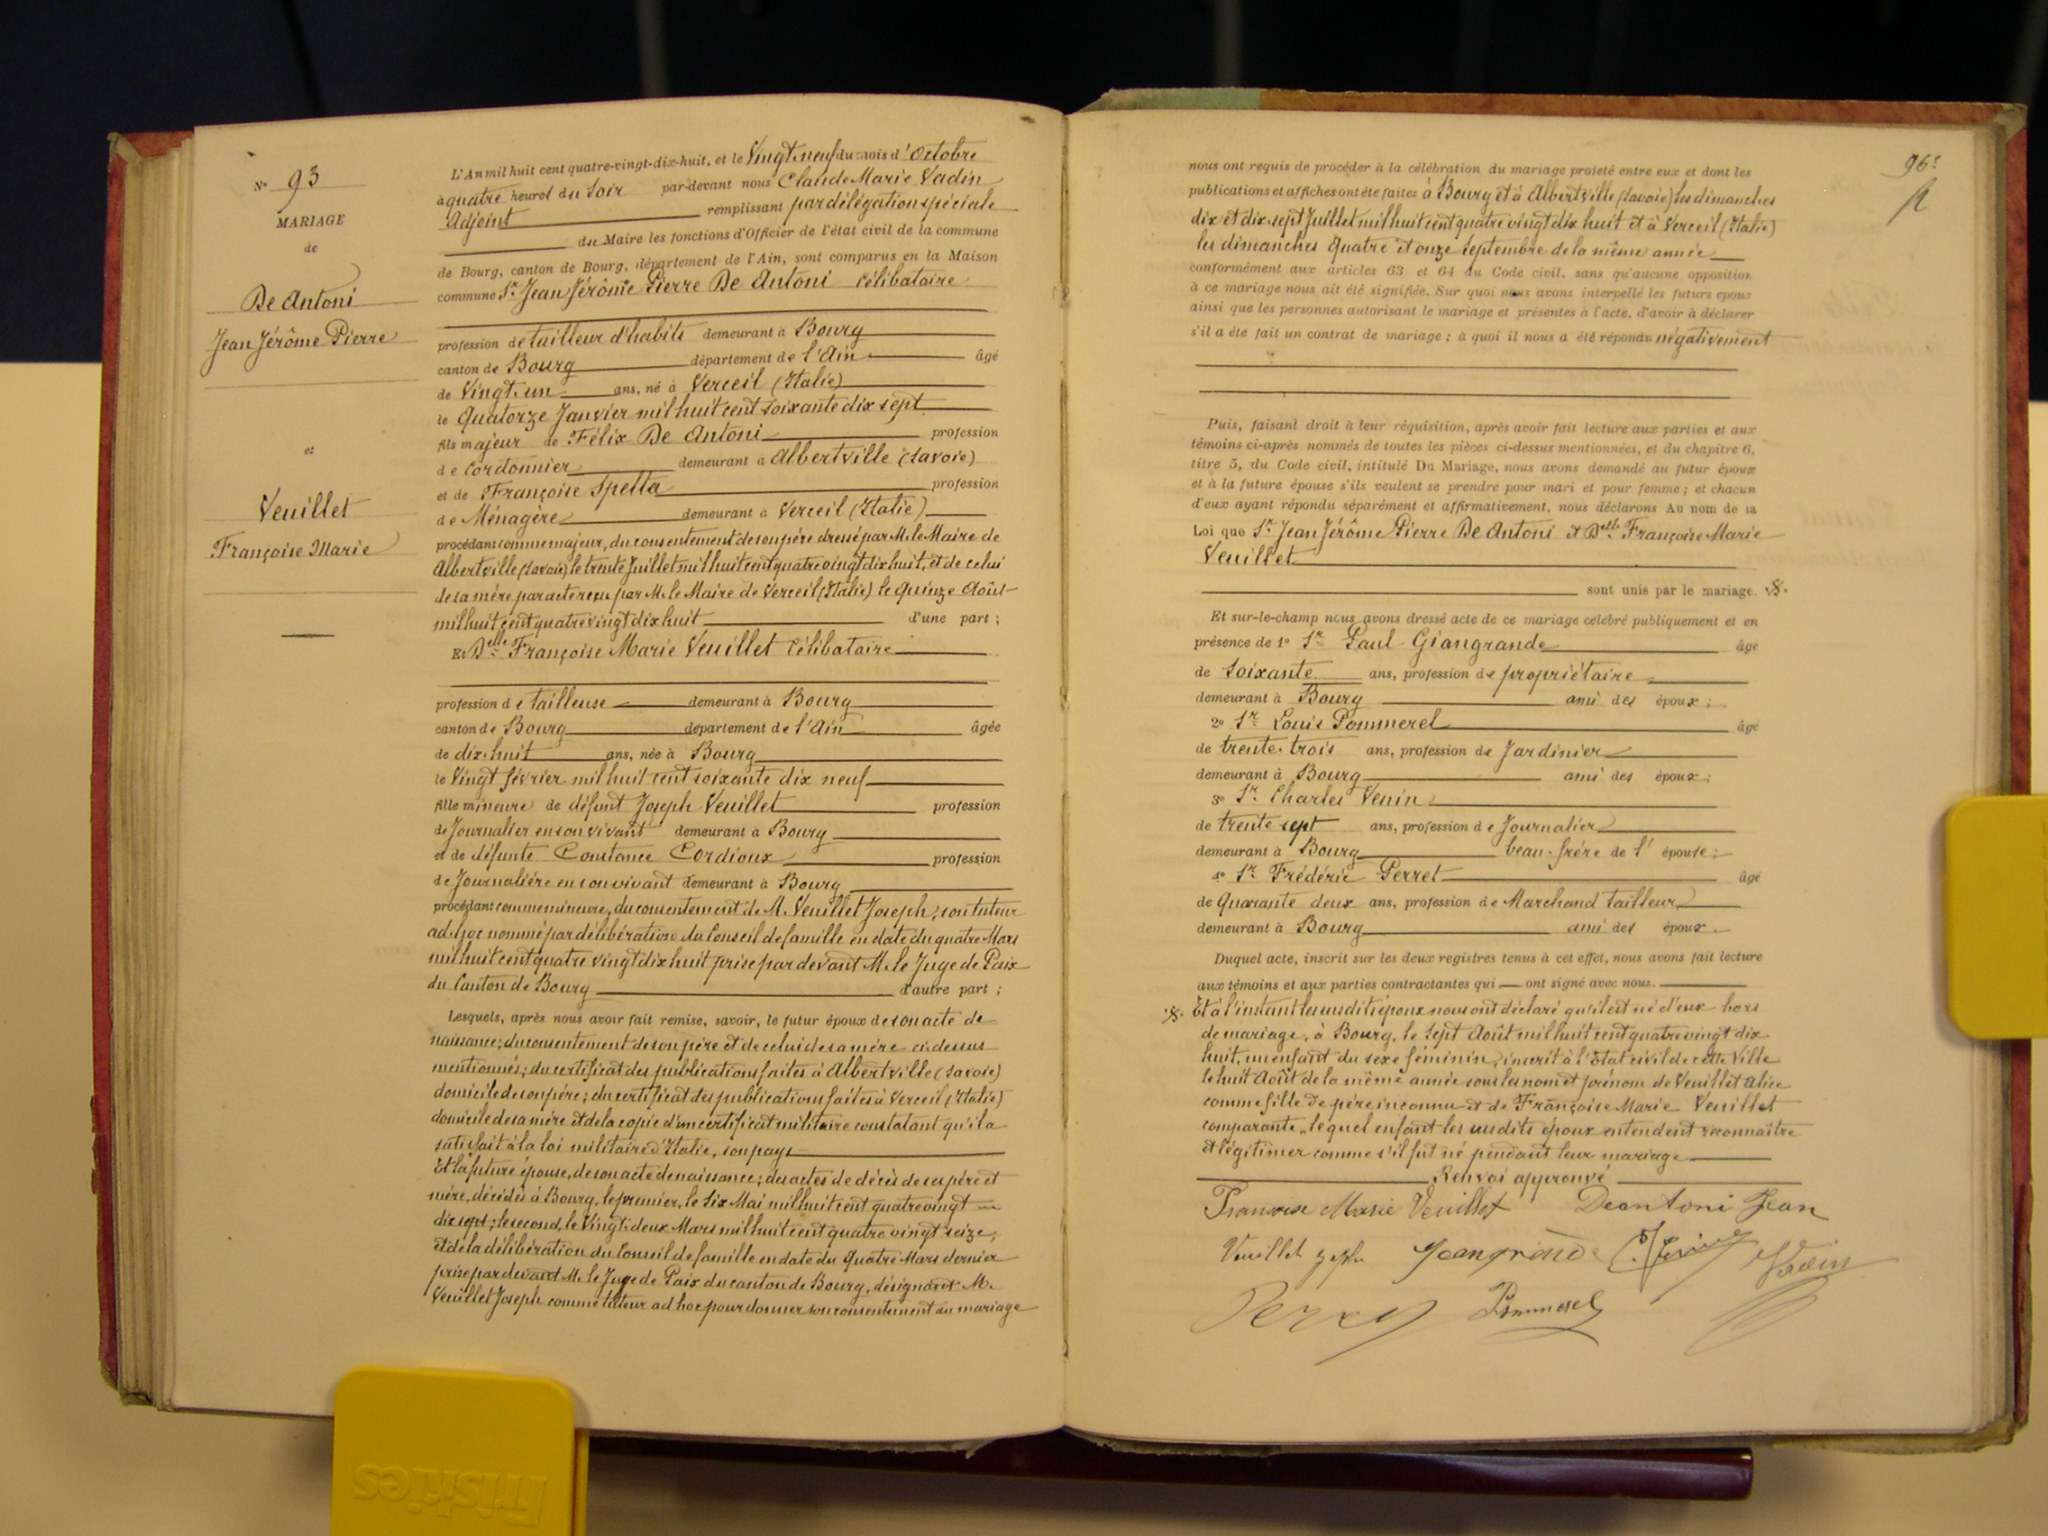 N° 93
MARIAGE
de
De Antoni
Jean Jérôme Pierre
et
Veuillet
Françoise Marie
L'An mil huit cent quatre-vingt-dix-huit, et le Vingt-neuf du mois d'Octobre
à quatre heures du Soir par-devant nous Claude Marie Vadin
Adjoint remplissant par délégation spéciale
du Maire les fonctions d'Officier de l'état civil de la commune
de Bourg, canton de Bourg, département de l'Ain, sont comparus en la Maison
commune Sr. Jean Jérôme Pierre De Antoni Célibataire
profession de tailleur d'habits demeurant à Bourg
canton de Bourg département de l'Ain âgé
de Vingt-un ans, né à Verceil (Italie)
le Quatorze Janvier mil huit cent soixante dix sept
fils majeur de Félix De Antoni profession
de Cordonnier demeurant à Albertville (Savoie)
et de Françoise Spetta profession
de Ménagère demeurant à Verceil (Italie)
procédant comme majeur, du consentement de son père dressé par M. le Maire de
Albertville (Savoie) le trente Juillet mil huit cent quatre vingt dix huit, et de celui
de sa mère par acte reçu par M. le Maire de Verceil (Italie) le Quinze Août
mil huit cent quatre vingt dix huit d'une part ;
Et Delle Françoise Marie Veuillet Célibataire
profession de tailleuse demeurant à Bourg
canton de Bourg département de l'Ain âgée
de dix-huit ans, née à Bourg
le Vingt février mil huit cent soixante dix neuf
fille mineure de défunt Joseph Veuillet profession
de Journalier en son vivant demeurant à Bourg
et de défunte Constance Cordioux profession
de Journalière en son vivant demeurant à Bourg
procédant comme mineure, du consentement de M. Veuillet Joseph, son tuteur
ad-hoc nommé par délibération du Conseil de famille en date du quatre Mars
mil huit cent quatre vingt dix huit prise par devant M. le Juge de Paix
du Canton de Bourg d'autre part ;
Lesquels, après nous avoir fait remise, savoir, le futur époux de son acte de
naissance ; du consentement de son père et de celui de sa mère ci-dessus
mentionnés ; du certificat des publications faites à Albertville (Savoie)
domicile de son père ; du certificat des publications faites à Verceil (Italie)
domicile de sa mère et de la copie d'un certificat militaire constatant qu'il a
satisfait à la loi militaire d'Italie, son pays
Et la future épouse, de son acte de naissance ; des actes de décès de ses père et
mère, décédés à Bourg, le premier, le Six Mai mil huit cent quatre vingt
dix sept ; le second, le Vingt-deux Mars mil huit cent quatre vingt seize,
et de la délibération du Conseil de famille en date du Quatre Mars dernier
prise par devant M. le Juge de Paix du canton de Bourg, désignant M.
Veuillet Joseph comme tuteur ad hoc pour donner son consentement au mariage
96
nous ont requis de procéder à la célébration du mariage projeté entre eux et dont les
publications et affiches ont été faites à Bourg et à Albertville (Savoie) les dimanches
dix et dix-sept Juillet mil huit cent quatre vingt dix huit et à Verceil (Italie)
les dimanches Quatre et onze Septembre de la même année
conformément aux articles 63 et 64 du Code civil, sans qu'aucune opposition
à ce mariage nous ait été signifiée. Sur quoi nous avons interpellé les futurs époux
ainsi que les personnes autorisant le mariage et présentes à l'acte, d'avoir à déclarer
s'il a été fait un contrat de mariage ; à quoi il nous a été répondu négativement
Puis, faisant droit à leur réquisition, après avoir fait lecture aux parties et aux
témoins ci-après nommés de toutes les pièces ci-dessus mentionnées, et du chapitre 6,
titre 5, du Code civil, intitulé Du Mariage, nous avons demandé au futur époux
et à la future épouse s'ils veulent se prendre pour mari et pour femme ; et chacun
d'eux ayant répondu séparément et affirmativement, nous déclarons Au nom de la
Loi que Sr. Jean Jérôme Pierre De Antoni & Delle Françoise Marie
Veuillet
sont unis par le mariage.
Et sur-le-champ nous avons dressé acte de ce mariage célébré publiquement et en
présence de 1° Sr. Paul Giangrande âgé
de Soixante ans, profession de propriétaire
demeurant à Bourg ami des époux ;
2° Sr. Louis Pommerel âgé
de trente-trois ans, profession de Jardinier
demeurant à Bourg ami des époux ;
3° Sr. Charles Venin
de trente sept ans, profession de Journalier
demeurant à Bourg beau-frère de l'épouse ;
4° Sr. Frédéric Perret âgé
de Quarante deux ans, profession de Marchand tailleur
demeurant à Bourg ami des époux.
Duquel acte, inscrit sur les deux registres tenus à cet effet, nous avons fait lecture
aux témoins et aux parties contractantes qui ont signé avec nous.
Et à l'instant les susdits époux nous ont déclaré qu'il est né d'eux hors
de mariage, à Bourg, le Sept Août mil huit cent quatre vingt dix
huit, un enfant du sexe féminin, inscrit à l'Etat civil de cette Ville
le huit Août de la même année sous les nom et prénom de Veuillet Alice
comme fille de père inconnu et de Françoise Marie Veuillet
comparante, lequel enfant les susdits époux entendent reconnaître
et légitimer comme s'il fut né pendant leur mariage
Renvoi approuvé
Francoise Marie Veuillet Deantoni Jean
Veuillet Joseph Vadin
Perret Pommerel